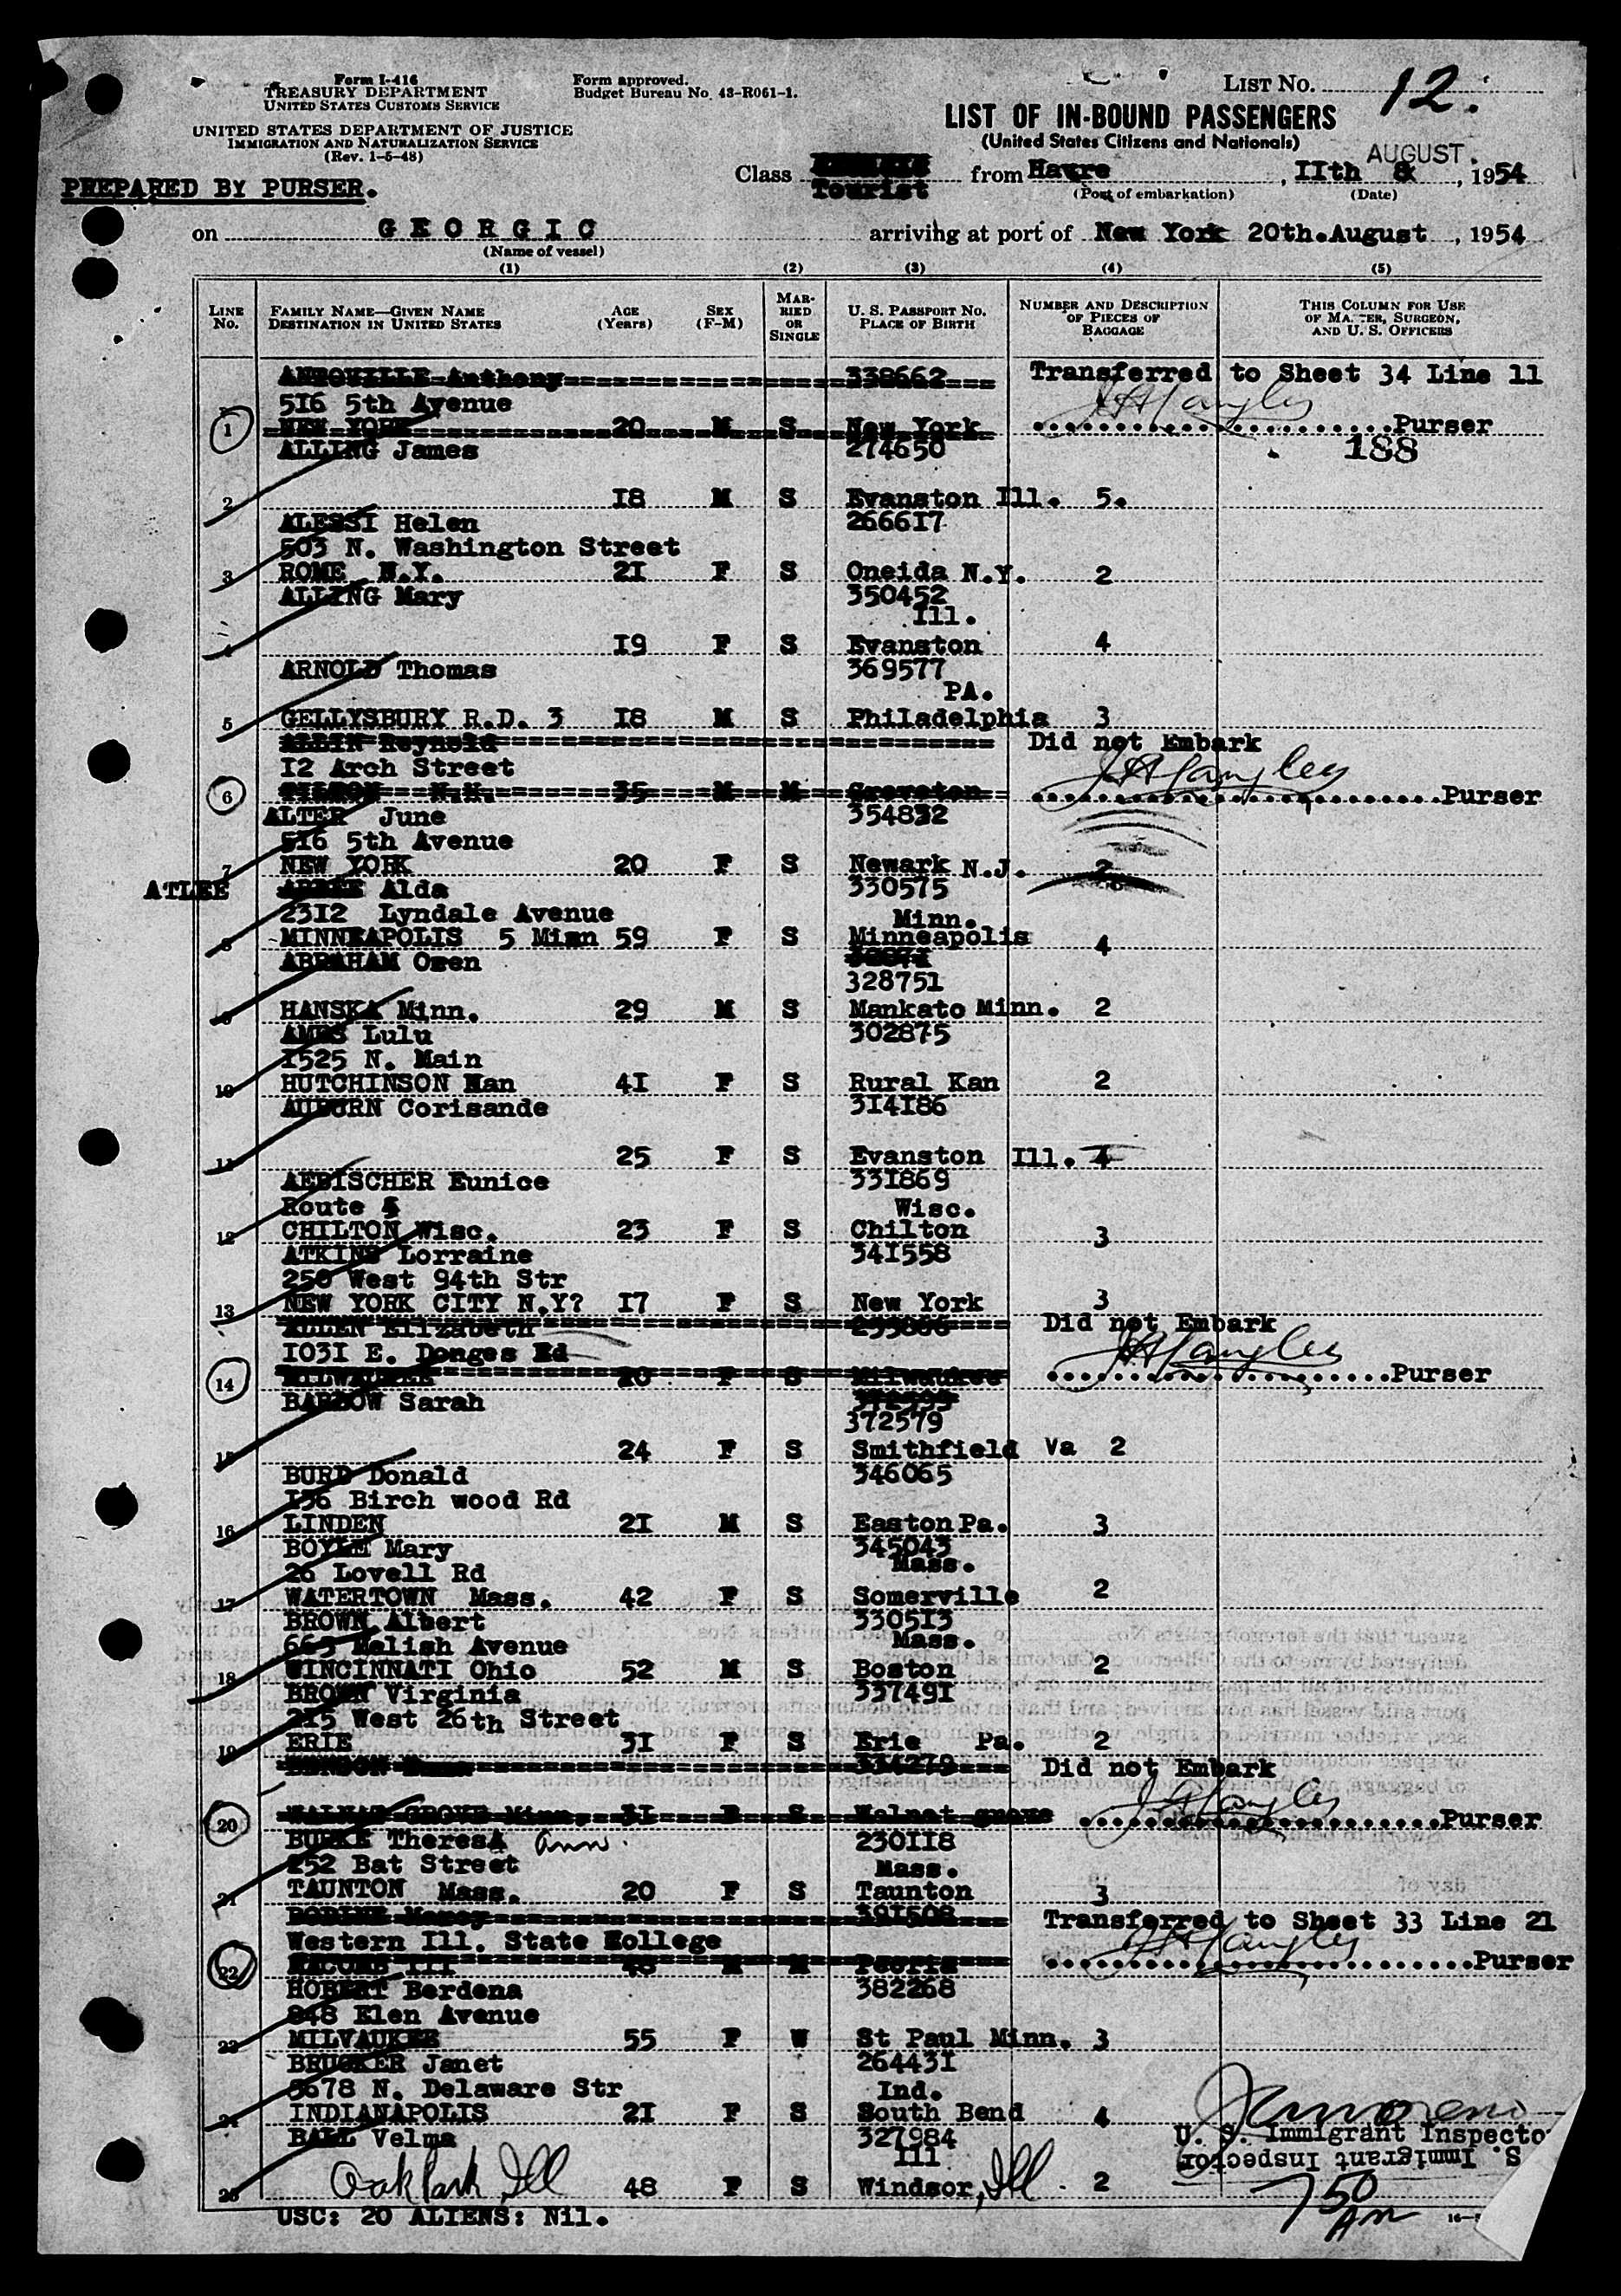 Form I-416
TREASURY DEPARTMENT
UNITED STATES CUSTOMS SERVICE
UNITED STATES DEPARTMENT OF JUSTICE
IMMIGRATION AND NATURALIZATION SERVICE
(Rev. 1-5-48)
PREPARED BY PURSER.
Form approved.
Budget Bureau No. 43-R061-1.
LIST No. 12.
LIST OF IN-BOUND PASSENGERS
(United States Citizens and Nationals)
Class Tourist from Havre, 11th AUGUST. 1954
(Port of embarkation) (Date)
on GEORGIC arriving at port of New York 20th.August, 1954
(Name of vessel)
(1) (2) (3) (4) (5)
LINE No. FAMILY NAME—GIVEN NAME DESTINATION IN UNITED STATES AGE (Years) SEX (F-M) MARRIED OR SINGLE U. S. PASSPORT NO. PLACE OF BIRTH NUMBER AND DESCRIPTION OF PIECES OF BAGGAGE THIS COLUMN FOR USE OF MASTER, SURGEON, AND U. S. OFFICERS
Anthony 338662 Transferred to Sheet 34 Line 11
516 5th Avenue
1 NEW YORK 20 M S New York Purser
ALLING James 274650 188
2 18 M S Evanston Ill. 5.
ALESSI Helen 266617
503 N. Washington Street
3 ROME N.Y. 21 F S Oneida N.Y. 2
ALLING Mary 350452
Ill.
4 19 F S Evanston 4
ARNOLD Thomas 369577
PA.
5 GELLYSBURY R.D. 3 18 M S Philadelphia 3
Did not Embark
12 Arch Street
6 N.H. 35 M M Purser
ALTER June 354832
516 5th Avenue
7 NEW YORK 20 F S Newark N.J. 2
ATLEE Alda 330575
2312 Lyndale Avenue Minn.
8 MINNEAPOLIS 5 Minn 59 F S Minneapolis 4
ABRAHAM Oren
328751
9 HANSKA Minn. 29 M S Mankato Minn. 2
AMES Lulu 302875
1525 N. Main
10 HUTCHINSON Kan 41 F S Rural Kan 2
AUBURN Corisande 314186
11 25 F S Evanston Ill. 4
AEBISCHER Eunice 331869
Route 5 Wisc.
12 CHILTON Wisc. 23 F S Chilton 3
ATKINS Lorraine 341558
250 West 94th Str
13 NEW YORK CITY N.Y? 17 F S New York 3
ALLEN Elizabeth Did not Embark
1031 E. Donges Rd
14 MILWAUKEE 20 F S Milwaukee Purser
BARLOW Sarah
372579
15 24 F S Smithfield Va 2
BURD Donald 346065
136 Birch wood Rd
16 LINDEN 21 M S Easton Pa. 3
BOYLE Mary 345043
26 Lovell Rd Mass.
17 WATERTOWN Mass. 42 F S Somerville 2
BROWN Albert 330513
663 Melish Avenue Mass.
18 CINCINNATI Ohio 52 M S Boston 2
BROWN Virginia 337491
215 West 26th Street
19 ERIE 31 F S Erie Pa. 2
334279 Did not Embark
20 WALNUT GROVE Minn. 31 F S Walnut grove Purser
BURKE TheresA Ann. 230118
252 Bat Street Mass.
21 TAUNTON Mass. 20 F S Taunton 3
391508 Transferred to Sheet 33 Line 21
Western Ill. State Kollege
22 MACOMB Ill M M Peoria Purser
HOBERT Berdena 382268
848 Elen Avenue
23 MILVAUKEE 55 F W St Paul Minn. 3
BRUCKER Janet 264431
5678 N. Delaware Str Ind.
24 INDIANAPOLIS 21 F S South Bend 4
BALL Velma 327984
Ill
25 Oak Park, Ill 48 F S Windsor, Ill. 2
U. S. Immigrant Inspector
S. Immigrant Inspector
750 AM
USC: 20 ALIENS: Nil.